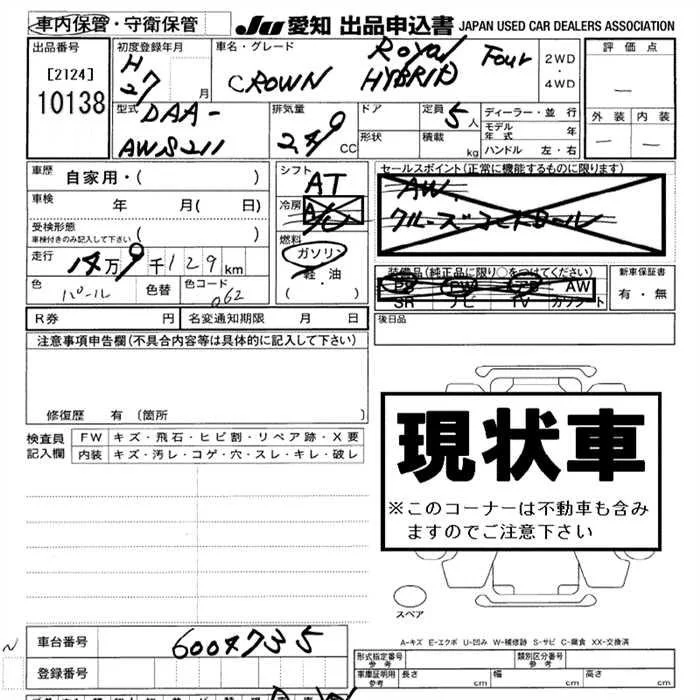 車内保管・守衛保管
JU 愛知 出品申込書 JAPAN USED CAR DEALERS ASSOCIATION
出品番号
[2124]
10138
初度登録年月
H
27 月
車名・グレード
CROWN Royal HYBRID Four
2WD
・
4WD
評価点
外装 内装
型式
DAA-
AWS211
排気量
249
CC
ドア
形状
定員 5 人
積載 kg
ディーラー・並行
モデル年式 年
ハンドル 左・右
車歴
自家用・( )
車検 年 月( 日)
受検形態
車検付きのみ記入して下さい ( )
走行 14万9千129km
色 パール
色替
色コード 062
シフト
AT
冷房
A/C
燃料
ガソリン
軽・油
( ・ )
セールスポイント(正常に機能するものに限ります)
AW.
クルーズコントロール
装備品(純正品に限り○をつけてください)
PS PW AB AW
SR ナビ TV カワシート
新車保証書
有・無
後日品
R券 円
名変通知期限 月 日
注意事項申告欄(不具合内容等は具体的に記入して下さい)
修復歴 有 (箇所 )
検査員
記入欄
FW キズ・飛石・ヒビ割・リペア跡・X要
内装 キズ・汚レ・コゲ・穴・スレ・キレ・破レ
現状車
※このコーナーは不動車も含み
ますのでご注意下さい
スペア
A-キズ E-エクボ U-凹み W-補修跡 S-サビ C-腐食 XX-交換済
車台番号 6004735
登録番号
形式指定番号
参考
類別区分番号
参考
車庫証明用
参考
長さ cm
幅 cm
高さ cm